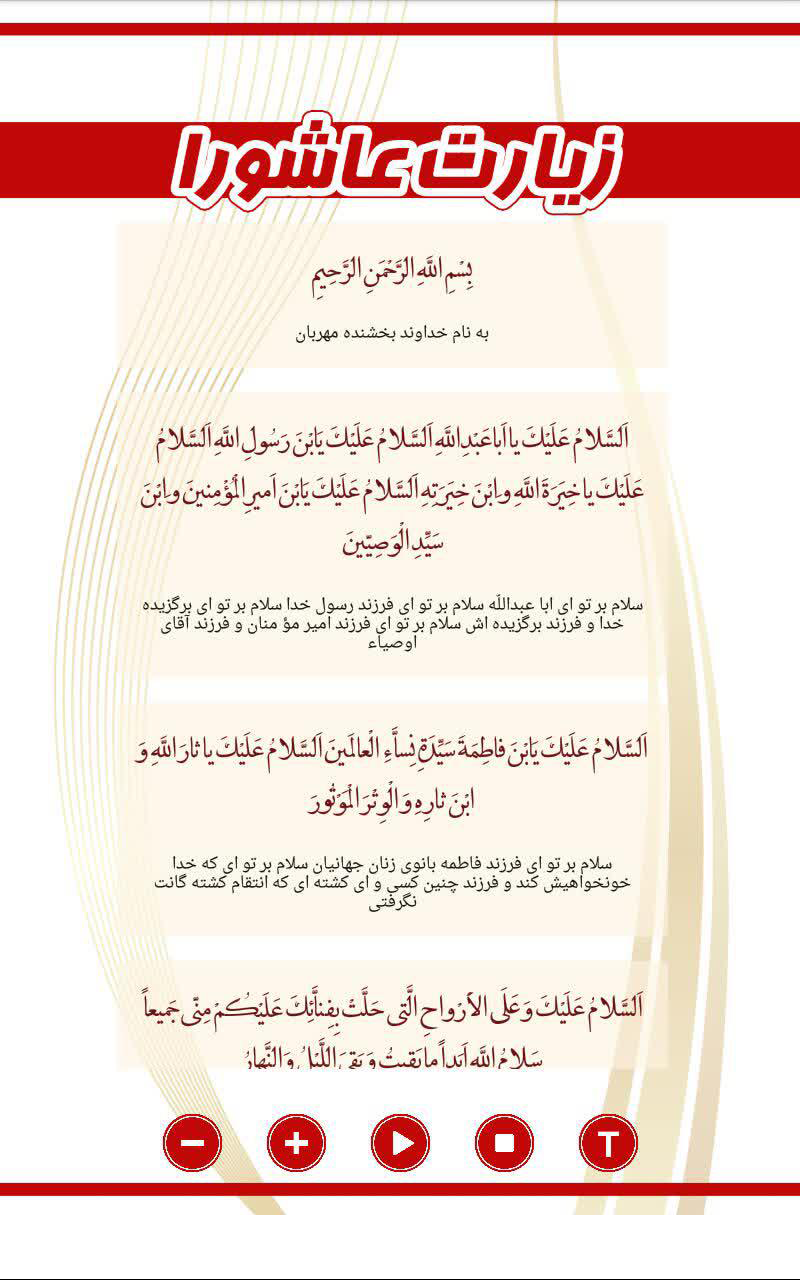 زیارت عاشورا
بِسْمِ اللَّهِ الرَّحْمَنِ الرَّحِيمِ
به نام خداوند بخشنده مهربان
اَلسَّلامُ عَلَيْكَ يا اَبا عَبْدِاللَّهِ اَلسَّلامُ عَلَيْكَ يَابْنَ رَسُولِ اللَّهِ اَلسَّلامُ
عَلَيْكَ يا خِيَرَةَ اللَّهِ وابْنَ خِيَرَتِهِ اَلسَّلامُ عَلَيْكَ يَابْنَ اَميرِ الْمُؤْمِنينَ وابْنَ
سَيِّدِ الْوَصِيّينَ
سلام بر تو ای ابا عبداللّه سلام بر تو ای فرزند رسول خدا سلام بر تو ای برگزیده
خدا و فرزند برگزیده اش سلام بر تو ای فرزند امیر مؤ منان و فرزند آقای
اوصیاء
اَلسَّلامُ عَلَيْكَ يَابْنَ فاطِمَةَ سَيِّدَةِ نِساَّءِ الْعالَمينَ اَلسَّلامُ عَلَيْكَ يا ثارَ اللَّهِ وَ
ابْنَ ثارِهِ وَالْوِتْرَ الْمَوْتُورَ
سلام بر تو ای فرزند فاطمه بانوی زنان جهانیان سلام بر تو ای که خدا
خونخواهیش کند و فرزند چنین کسی و ای کشته ای که انتقام کشته گانت
نگرفتی
اَلسَّلامُ عَلَيْكَ وَ عَلَى الاَرْواحِ الَّتى حَلَّتْ بِفِناَّئِكَ عَلَيْكُمْ مِنّى جَميعاً
سَلامُ اللَّهِ اَبَداً ما بَقيتُ وَ بَقِىَ اللَّيْلُ وَالنَّهارُ
T